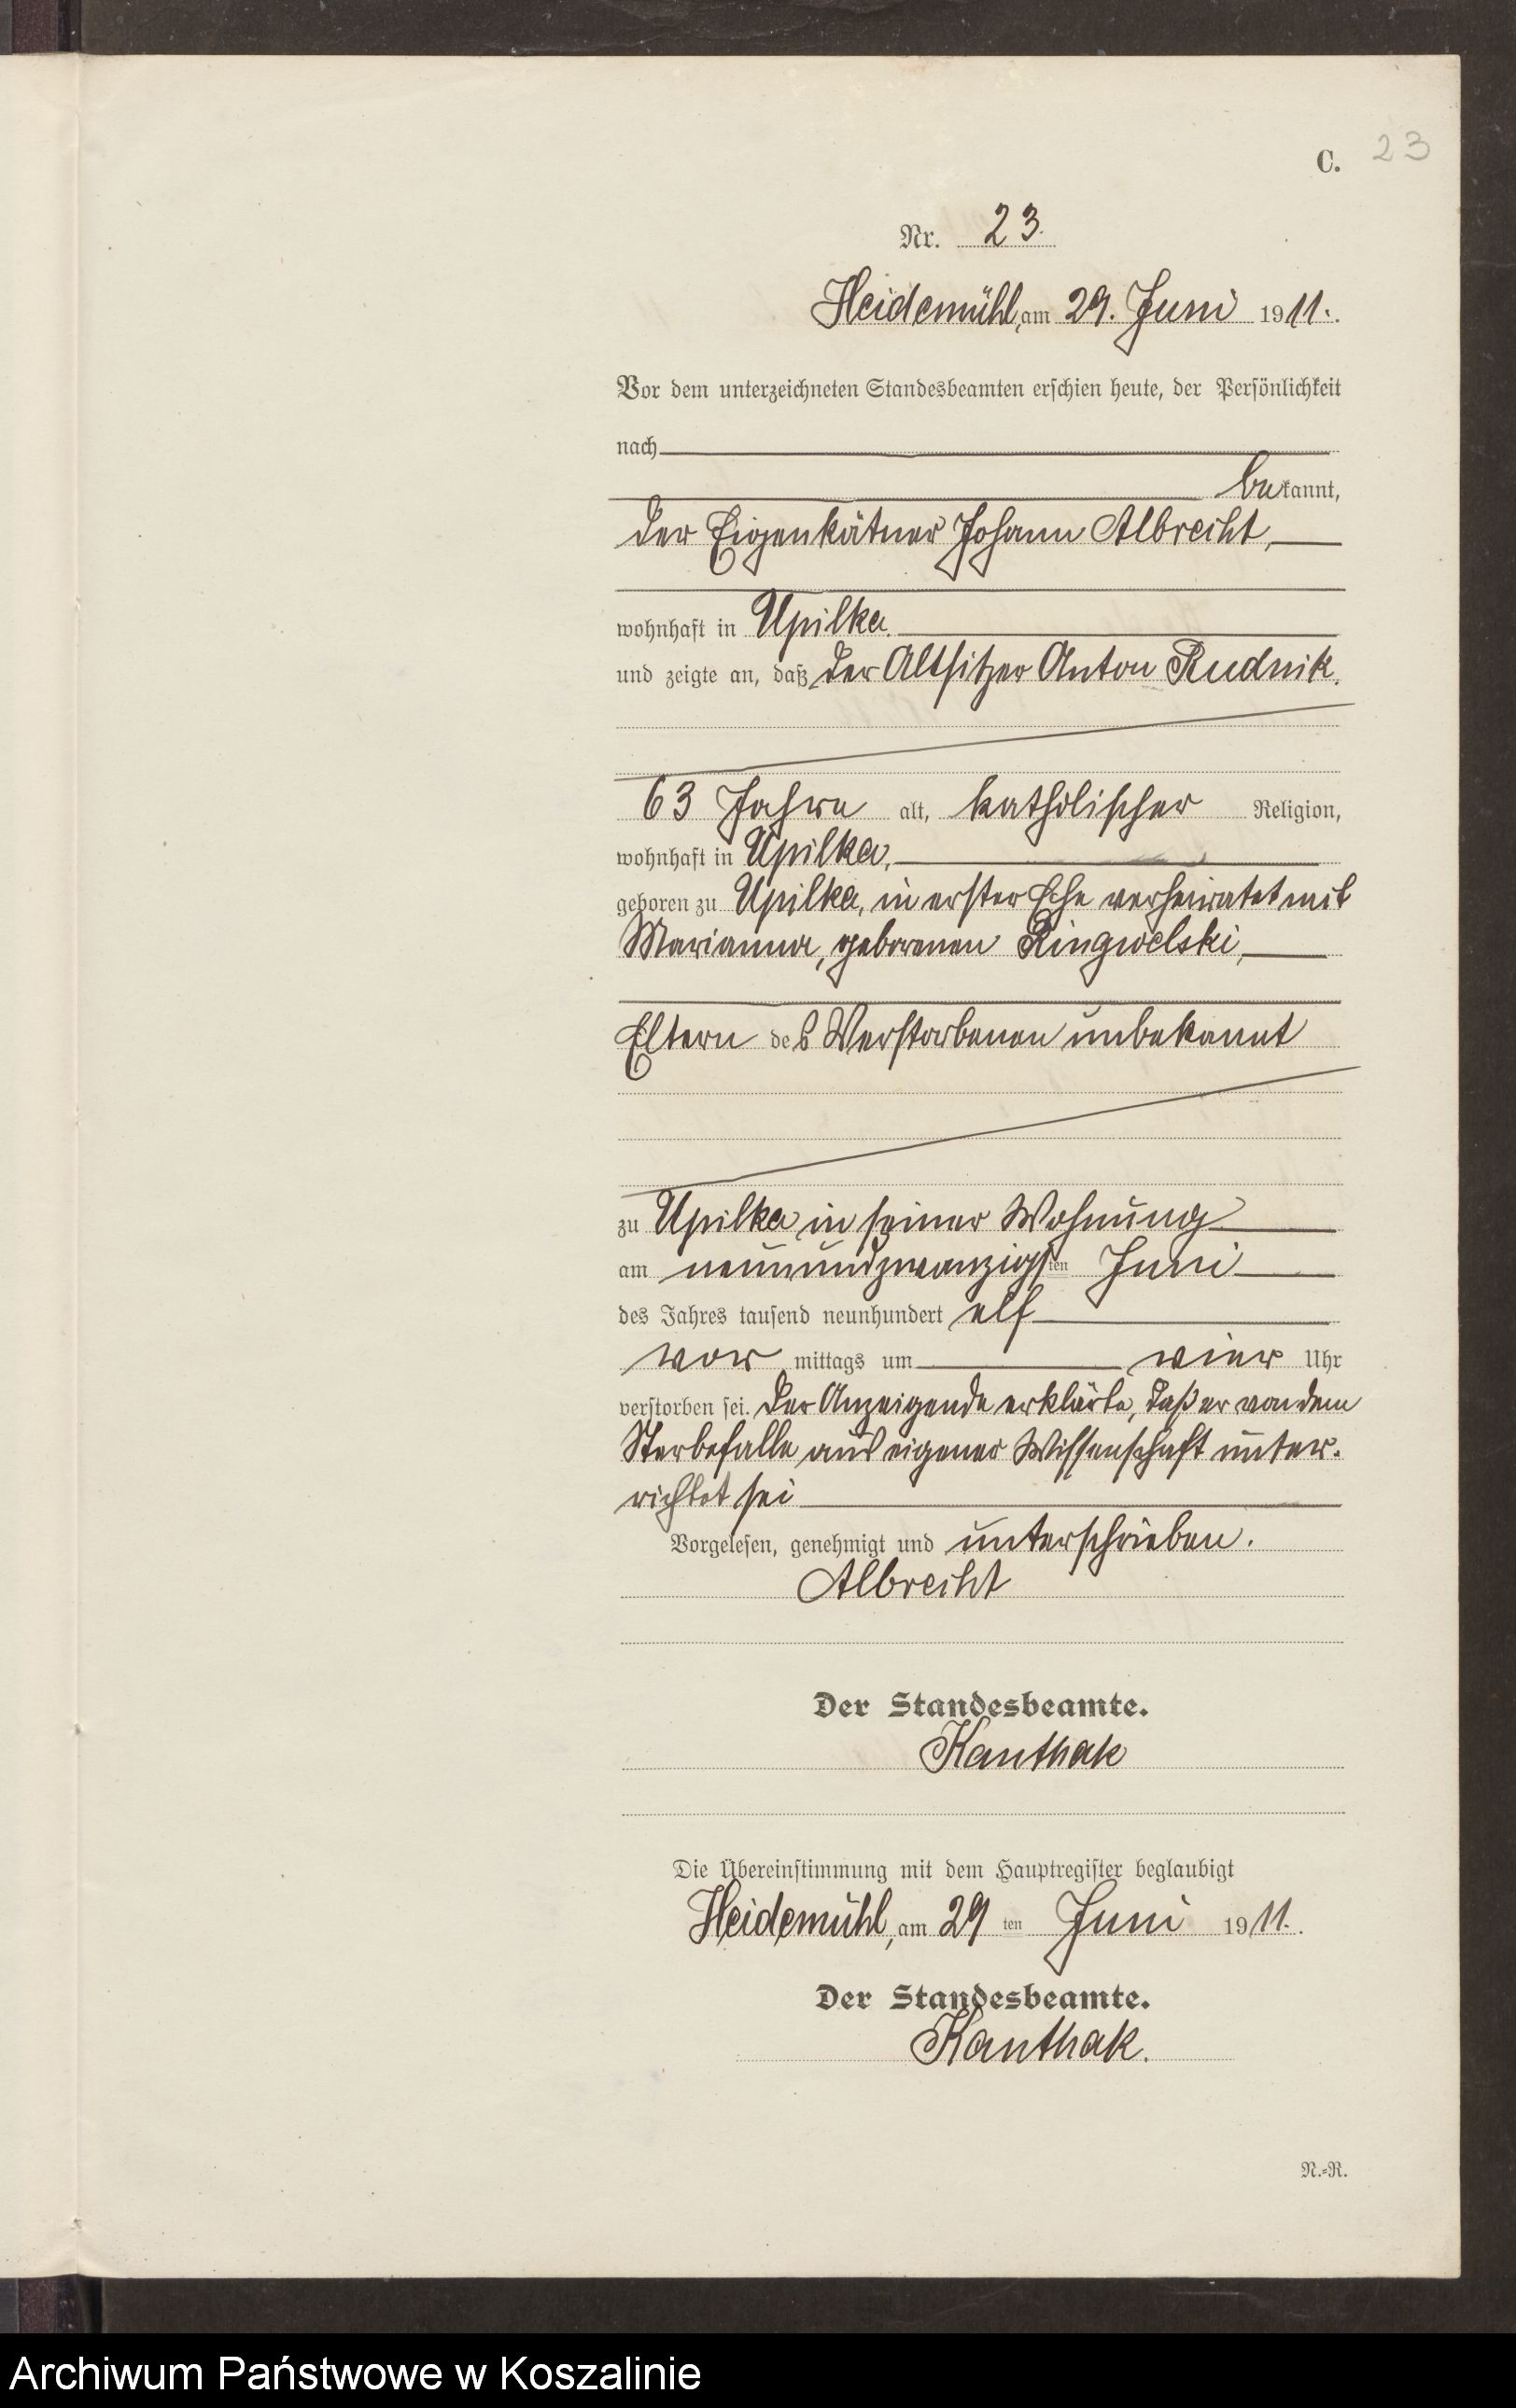 C. 23
Nr. 23.
Heidemühl, am 29. Juni 1911.
Vor dem unterzeichneten Standesbeamten erschien heute, der Persönlichkeit
nach
bekannt,
der Eigenkätner Johann Albrecht,
wohnhaft in Upilka.
und zeigte an, daß der Altsitzer Anton Rudnik,
63 Jahre alt, katholischer Religion,
wohnhaft in Upilka,
geboren zu Upilka, in erster Ehe verheiratet mit
Marianna, geborenen Ringwelski,
Eltern des Verstorbenen unbekannt
zu Upilka in seiner Wohnung
am neunundzwanzigsten Juni
des Jahres tausend neunhundert elf
vor mittags um vier Uhr
verstorben sei. Der Anzeigende erklärte, daß er von dem
Sterbefalle aus eigener Wissenschaft unter-
richtet sei
Vorgelesen, genehmigt und unterschrieben.
Albrecht
Der Standesbeamte.
Kanthak
Die Übereinstimmung mit dem Hauptregister beglaubigt
Heidemühl, am 29ten Juni 1911.
Der Standesbeamte.
Kanthak.
N.-R.
Archiwum Państwowe w Koszalinie